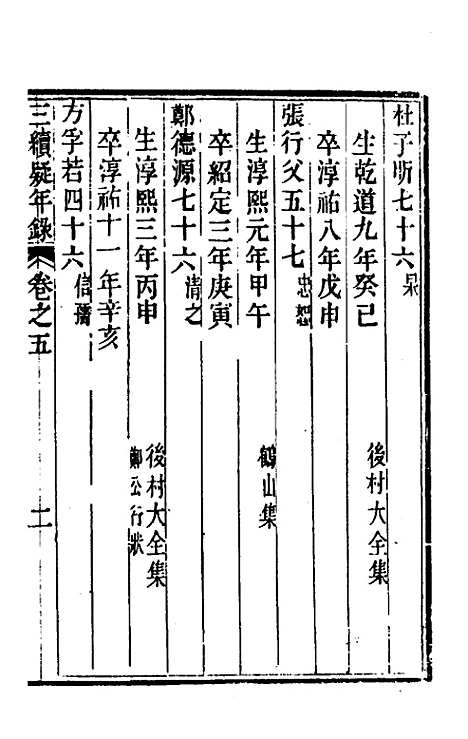 杜子昕七十六 杲
生乾道九年癸巳 後村大全集
卒淳祐八年戊申
張行父五十七 忠恕
生淳熙元年甲午 鶴山集
卒紹定三年庚寅
鄭德源七十六 清之
生淳熙三年丙申 後村大全集鄭公行狀
卒淳祐十一年辛亥
方孚若四十六 信孺
三續疑年錄 卷之五 二